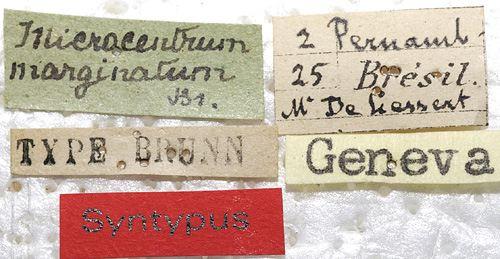 Microcentrum
marginatum
Br.
2 Pernamb.
25 Brésil.
Mr De Lessert
TYPE BRUNN
Geneva
Syntypus